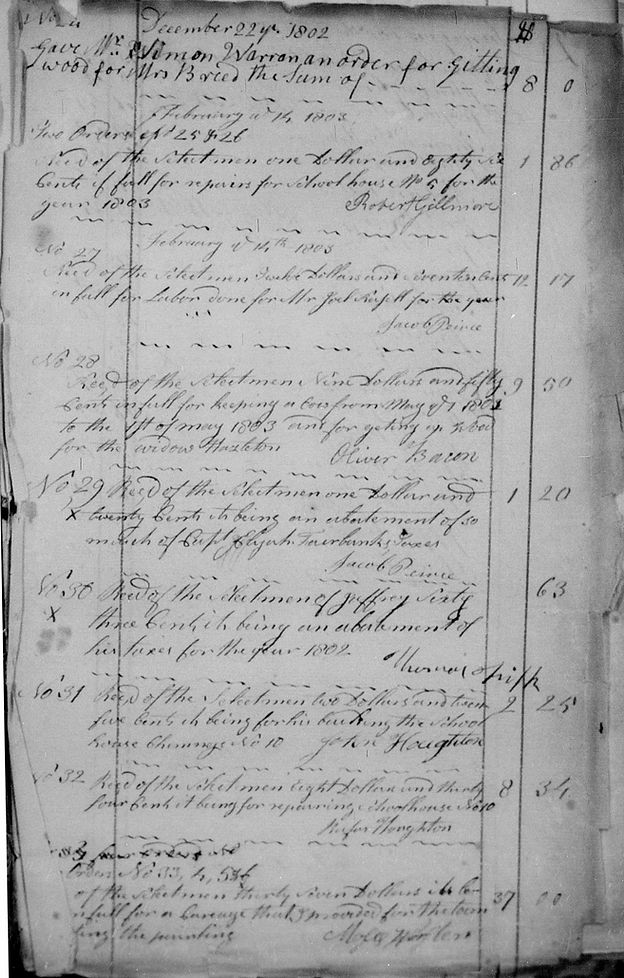 No 24 December 22 1802
Gave Mr Simon Warran an order for Gitting
wood for Mrs Breed the Sum of 8 0
February 14 1803
Two Orders 25 & 26
Recd of the Selectmen one Dollar and Eighty Six 1 86
Cents if full for repairs for School house No 5 for the
year 1803 Robert Gillmore
No 27 February 14th 1803
Recd of the Selectmen Twelve Dollars and Seventeen Cents 12 17
in full for Labor done for Mr Joel for the year
Jacob Peirce
No 28
Recd of the Selectmen Nine Dollars and fifty 9 50
Cents in full for keeping a Cow from May 1802
to the 1st of may 1803 and for geting up Wood
for the widow Hazleton Oliver Bacon
No 29 Recd of the Selectmen one Dollar and 1 20
x twenty Cents it being an abatement of so
much of Capt Elijah Fairbanks Taxes
Jacob Peirce
No 30 Recd of the Selectmen of Jaffrey Sixty 63
x three Cents it being an abatement of
his taxes for the year 1802
Thomas
No 31 Recd of the Selectmen two Dollars and twen 2 25
five Cents it being for his the School
house Chimneys No 10 John Houghton
No 32 Recd of the Selectmen Eight Dollars and thirty 8 34
four Cents it being for repairing Schoolhouse No 10
Rufus Houghton
four
Orders No 33, 4, 5 & 6
of the Selectmen thirty Seven Dollars it be 37 00
in full for a that I provided for the town
ting the painting